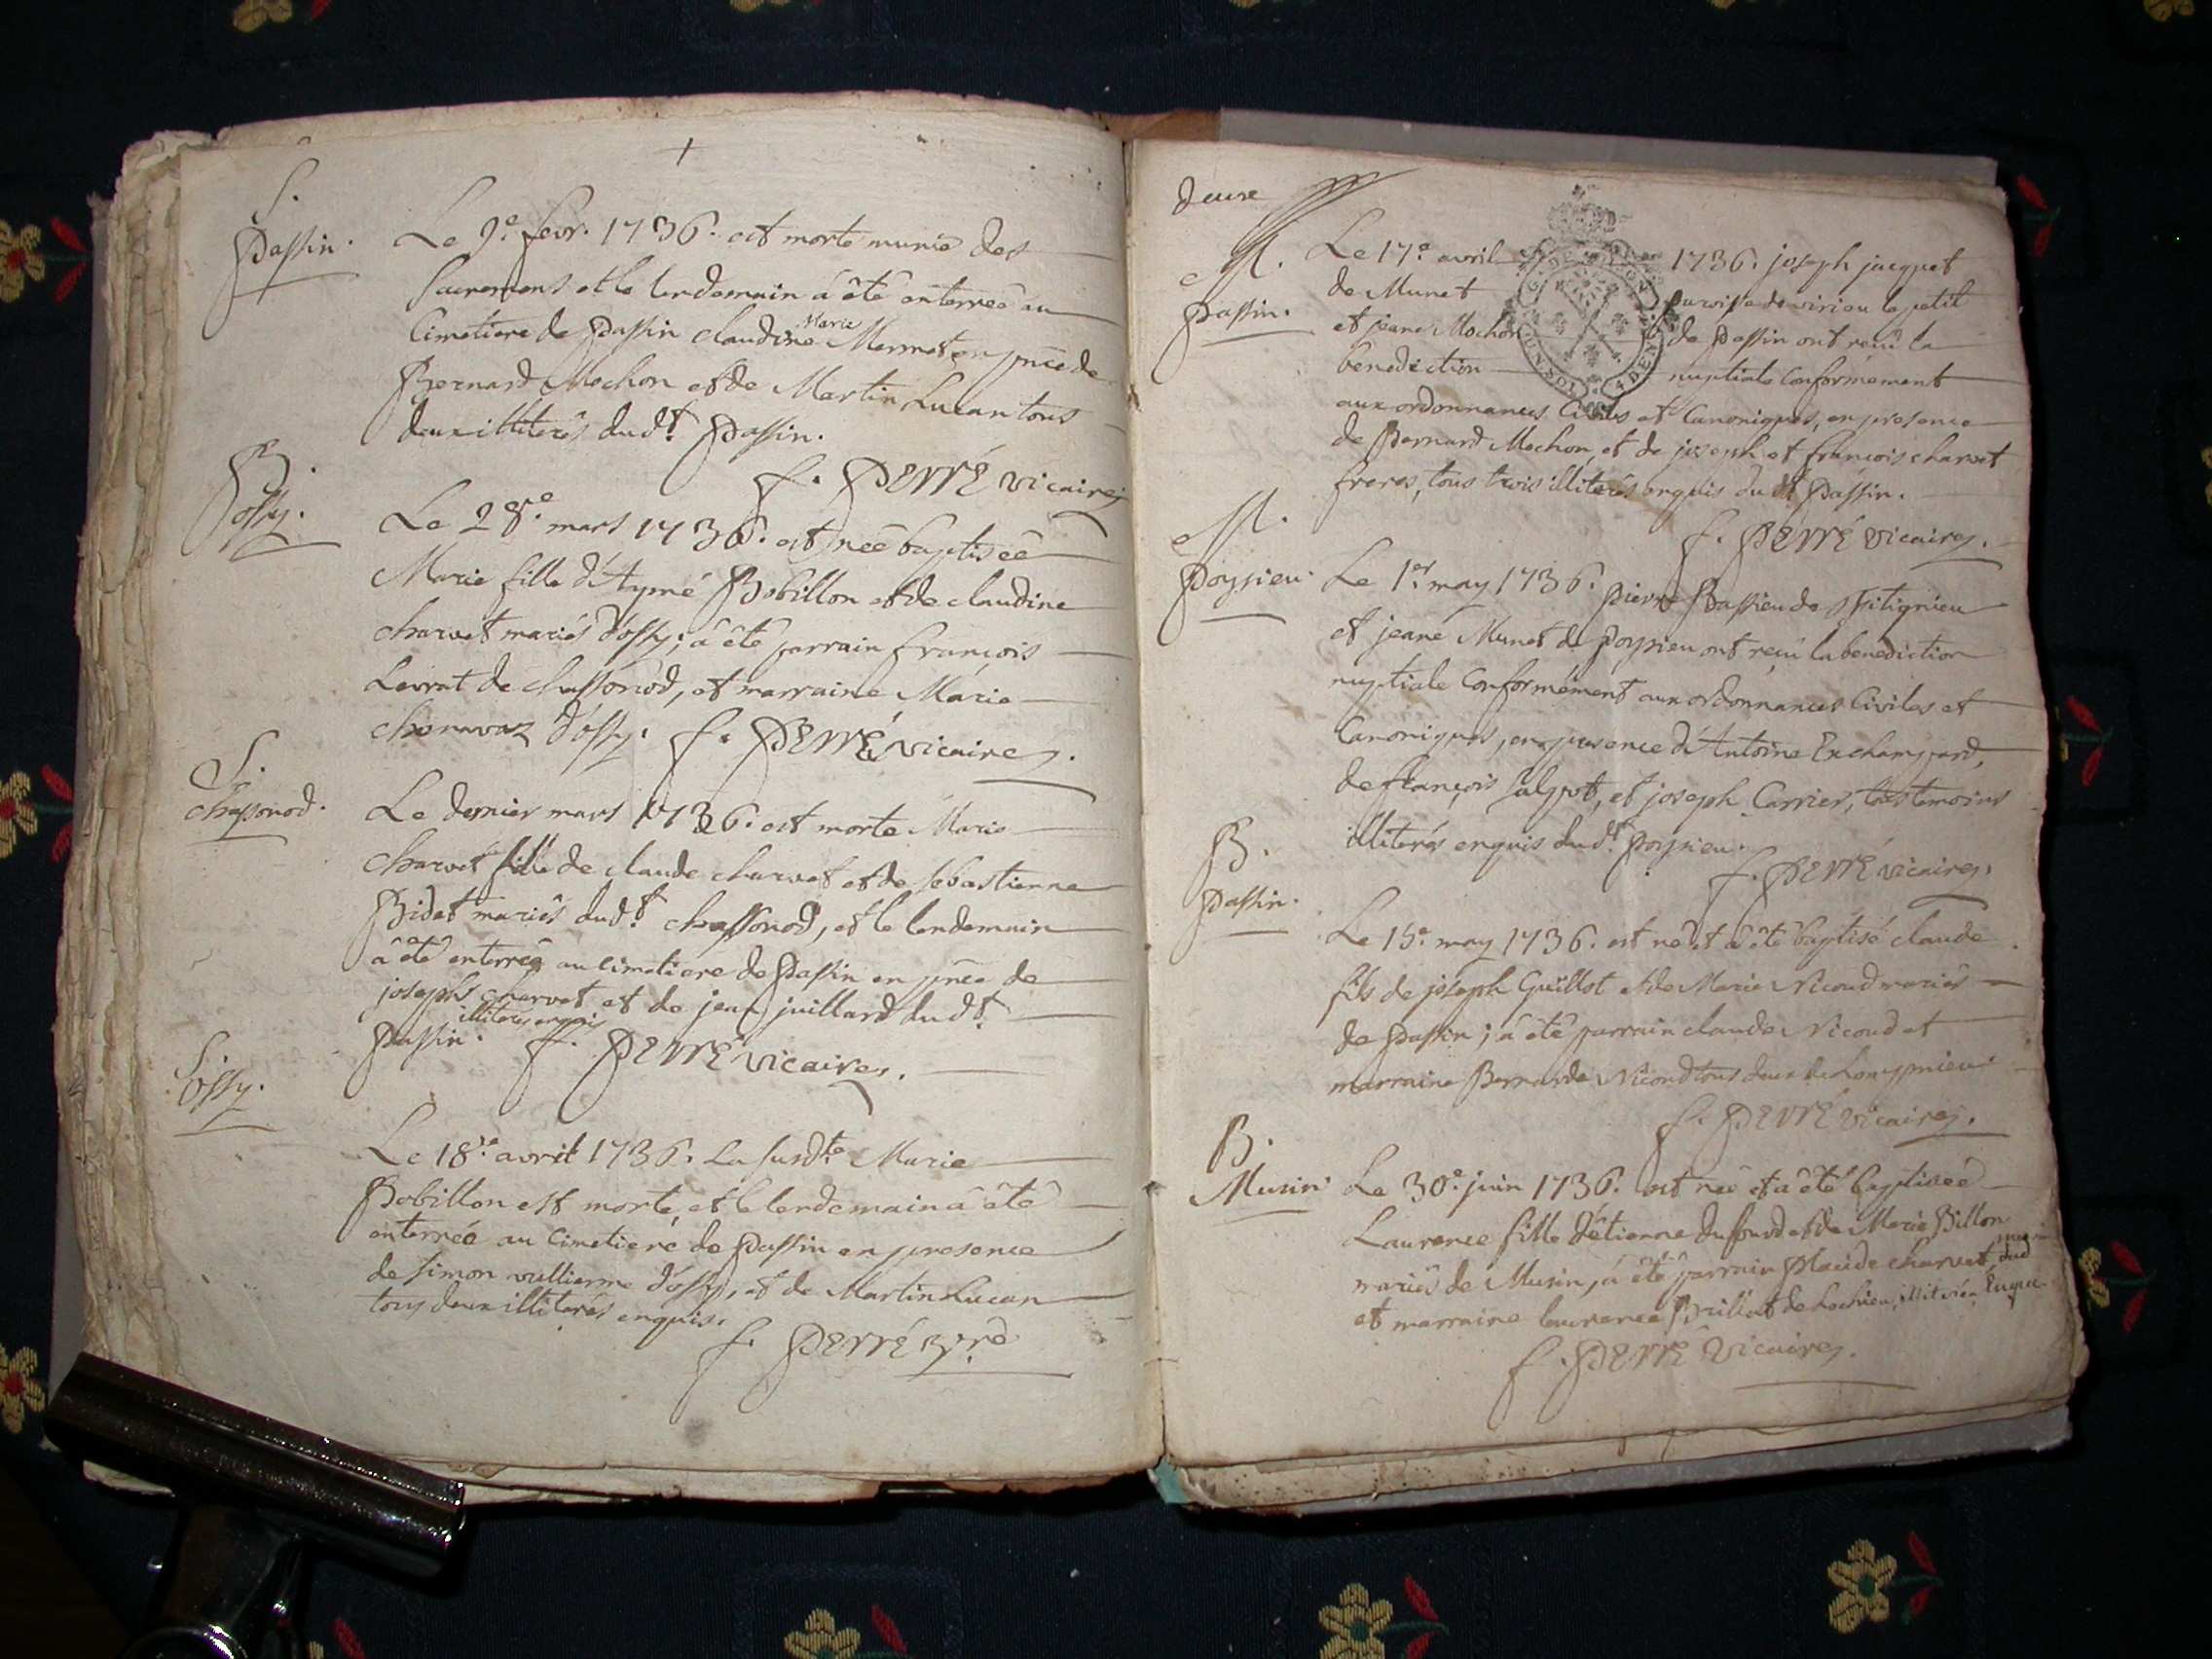 S.
Passin.
Le 9e. fevr. 1736. est morte munie des
sacremens et le lendemain a été enterreé au
Cimetiere de Passin claudine Marie Mermet en pñce de
Bernard Mochon et de Martin Lucan tous
deux illiterés dudt. Passin.
f. Perré vicaire
B.
ossy.
Le 28e. mars 1736. est neé baptiseé
Marie fille d'Aymé Bobillon et de claudine
charvet mariés d'ossy; a été parrain françois
Levrat de chassonod, et marraine Marie
d'ossy. f. Perré vicaire.
S.
chassonod.
Le dernier mars 1736. est morte Marie
charvet fille de claude charvet et de sebastienne
Bidat mariés dudt. chassonod, et le lendemain
a été enterreé au cimetiere de Passin en pñce de
joseph charvet et de jean juillard dudt.
Passin. illiterés enquis f. Perré vicaire.
S.
ossy.
Le 18e. avril 1736. La susdte. Marie
Bobillon est morte, et le lendemain a été
enterreé au Cimetiere de Passin en presence
de simon vullierme d'ossy, et de Martin Lucan
tous deux illiterés enquis.
f. Perré
deuxe
M.
Passin.
Le 17e. avril 1736. joseph jacquet
de Munet paroisse de virieu le petit
et jeane Mochon de Passin ont reçu la
benediction nuptiale Conformement
aux ordonnances Civiles et Canoniques, en presence
de Bernard Mochon, et de joseph et françois charvet
freres, tous trois illiterés enquis dudt Passin.
f. Perré vicaire.
M.
Poysieu.
Le 1er. may 1736. pierre Bassieu de
et jeane Munet de Poysieu ont reçu la benediction
nuptiale Conformément aux ordonnances Civiles et
Canoniques, en presence d'Antoine Exchampard,
de françois julpot, et joseph Carrier, tous temoins
illiterés enquis dudt. poysieu.
f. Perré vicaire.
B.
Passin.
Le 15e. may 1736. est né et a été baptisé claude
fils de joseph Guillot et de Marie Nicoud mariés
de Passin; a été parrain claude Nicoud et
marraine Bernarde Nicoud tous deux de Lompnieu
f. Perré vicaire.
B.
Musin.
Le 30e. juin 1736. est neé et a été baptiseé
Laurence fille d'étienne dufourd et de Marie Billon
mariés de Musin, a été parrain Placide charvet, dud
et marraine laurence Brillat de Lochieu, illiterés Enquis
f. Perré vicaire.